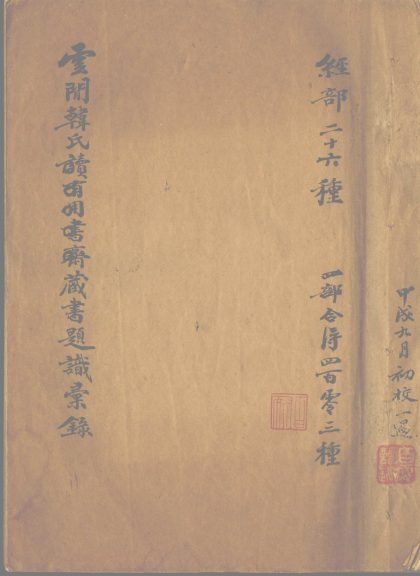 甲戌九月初校一過
經部二十六種　四部合得四百零三種
雲閒韓氏讀有用書齋藏書題識彙錄